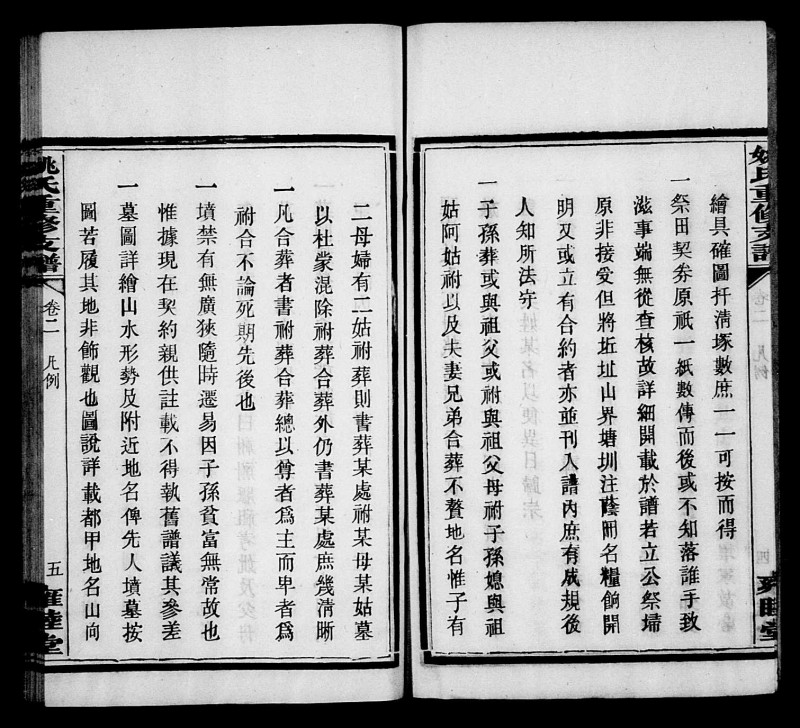 繪具確圖扦清塚數庶一一可按而得
一祭田契券原祇一紙數傳而後或不知落誰手致
滋事端無從查核故詳細開載於譜若立公祭埽
原非接受但將坵址山界塘圳注蔭開名糧餉開
明又或立有合約者亦並刊入譜內庶有成規後
人知所法守
一子孫葬或與祖父或祔與祖父母祔子孫媳與祖
姑阿姑祔以及夫妻兄弟合葬不贅地名惟子有
姚氏重修支譜
卷二 凡例
五
雍睦堂
二母婦有二姑祔葬則書葬某處祔某母某姑墓
以杜蒙混除祔葬合葬外仍書葬某處庶幾清晰
一凡合葬者書祔葬合葬總以尊者爲主而卑者爲
祔合不論死期先後也
一墳禁有無廣狹隨時遷易因子孫貧富無常故也
惟據現在契約親供註載不得執舊譜議其參差
一墓圖詳繪山水形勢及附近地名俾先人墳墓按
圖若履其地非飾觀也圖說詳載都甲地名山向